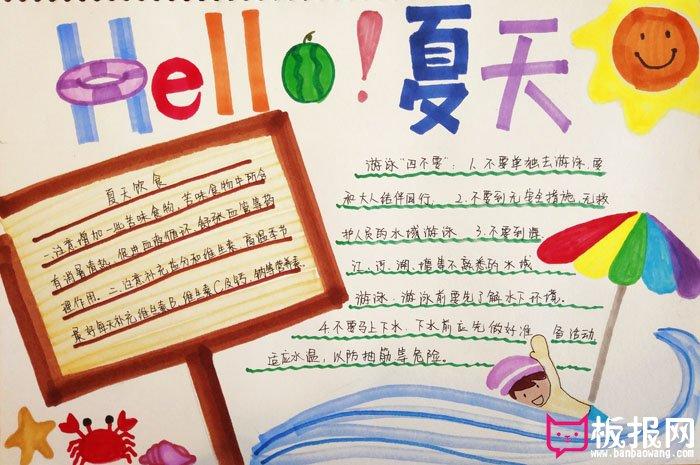 Hello！夏天
夏天饮食
一.注意增加一些苦味食物，苦味食物中所含
有消暑清热、促进血液循环、舒张血管等药
理作用。二.注意补充盐分和维生素。高温季节
最好每天补充维生素B、维生素C及钙、钠等营养素.
游泳“四不要”：1.不要单独去游泳，要
和大人结伴同行. 2.不要到无安全措施、无救
护人员的水域游泳 3.不要到
江、河、湖、塘等不熟悉的水域
游泳、游泳前要先了解水下环境。
4.不要马上下水、下水前应先做好准备活动
适应水温，以防抽筋等危险。
板报网
www.banbaowang.com